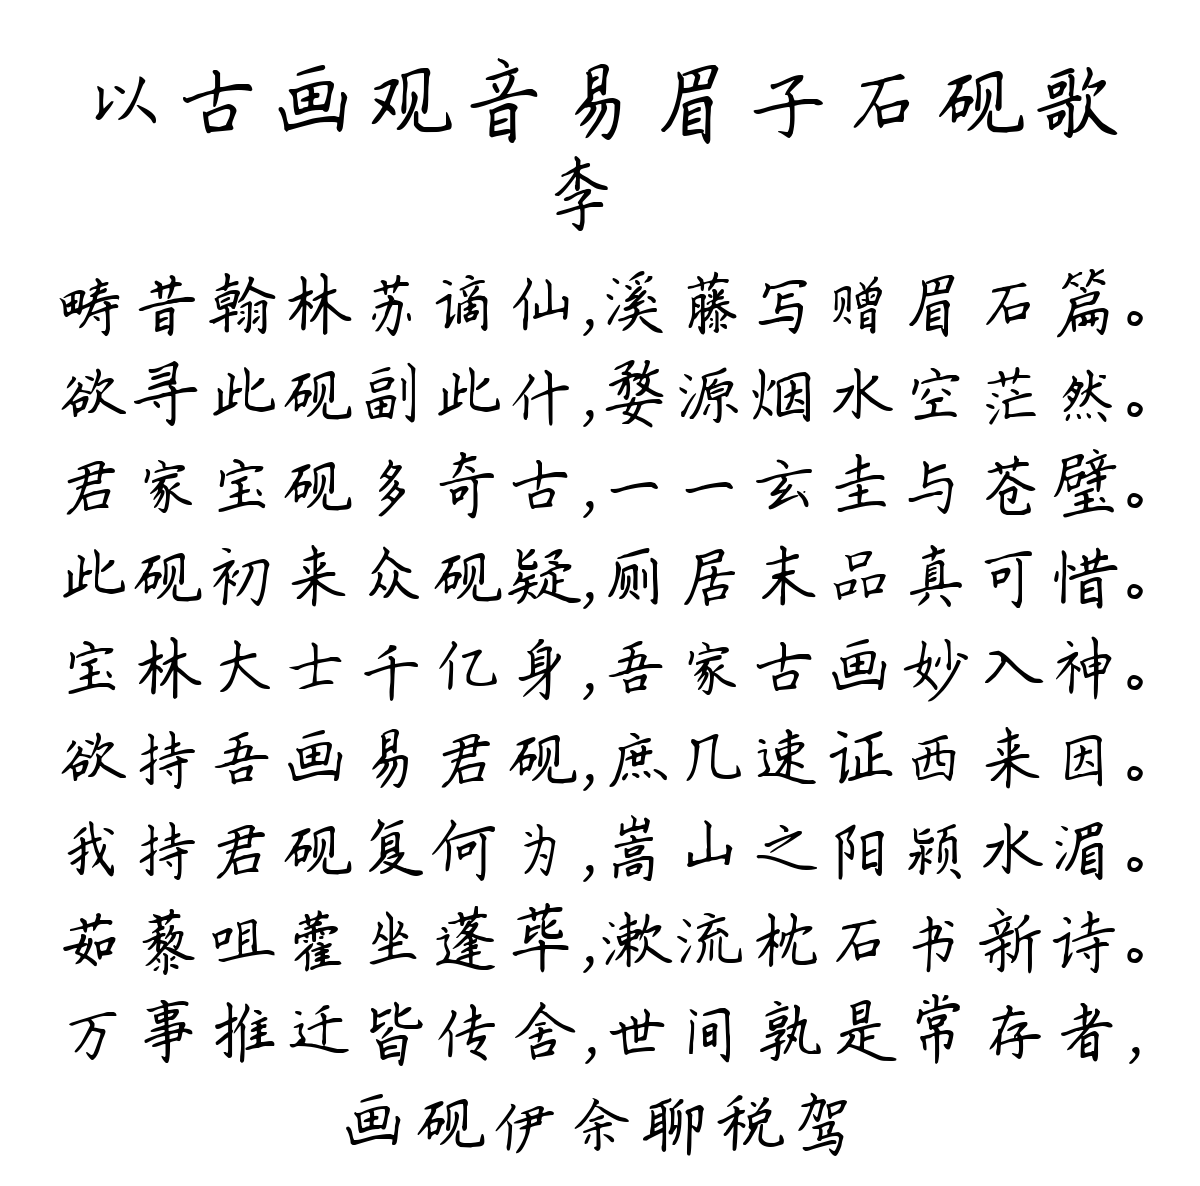 以古画观音易眉子石砚歌
李
畴昔翰林苏谪仙,溪藤写赠眉石篇。
欲寻此砚副此什,婺源烟水空茫然。
君家宝砚多奇古,一一玄圭与苍璧。
此砚初来众砚疑,厕居末品真可惜。
宝林大士千亿身,吾家古画妙入神。
欲持吾画易君砚,庶几速证西来因。
我持君砚复何为,嵩山之阳颍水湄。
茹藜咀藿坐蓬荜,漱流枕石书新诗。
万事推迁皆传舍,世间孰是常存者,
画砚伊余聊税驾